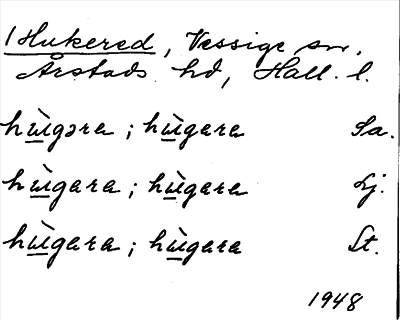 1 Hukered, Vessige sn,
Årstads hd, Hall. l.
hùgəra ; hùgara Sa.
hùgara ; hùgara Lj.
hùgara ; hùgara St.
1948